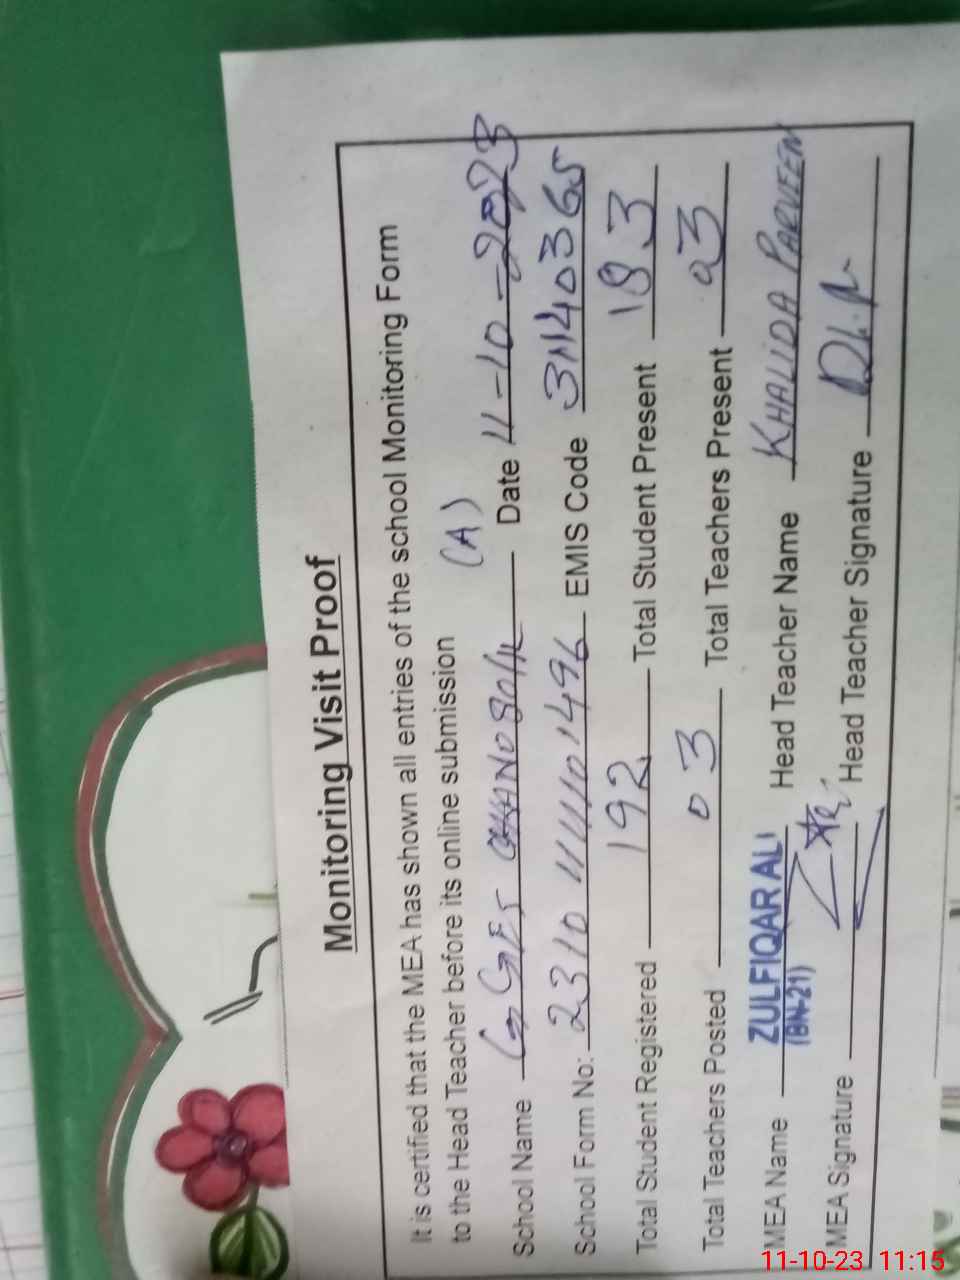 Monitoring Visit Proof
It is certified that the MEA has shown all entries of the school Monitoring Form
to the Head Teacher before its online submission
(A)
School Name GGES Date 11-10-2023
School Form No: EMIS Code
Total Student Registered 192 Total Student Present 183
Total Teachers Posted 03 Total Teachers Present 03
MEA Name ZULFIQAR ALI Head Teacher Name KHALIDA PARVEEN
(BN-21)
MEA Signature Head Teacher Signature
11-10-23 11:15